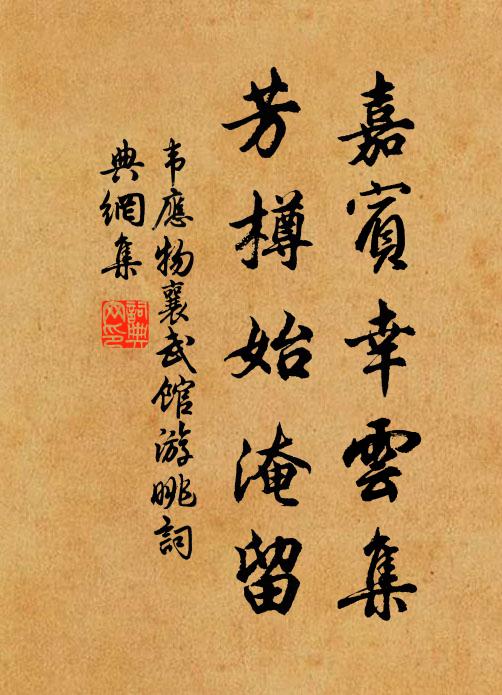 嘉賓幸雲集
芳樽始淹留
韦應物襄武館游眺詞
典網集
詞典網印